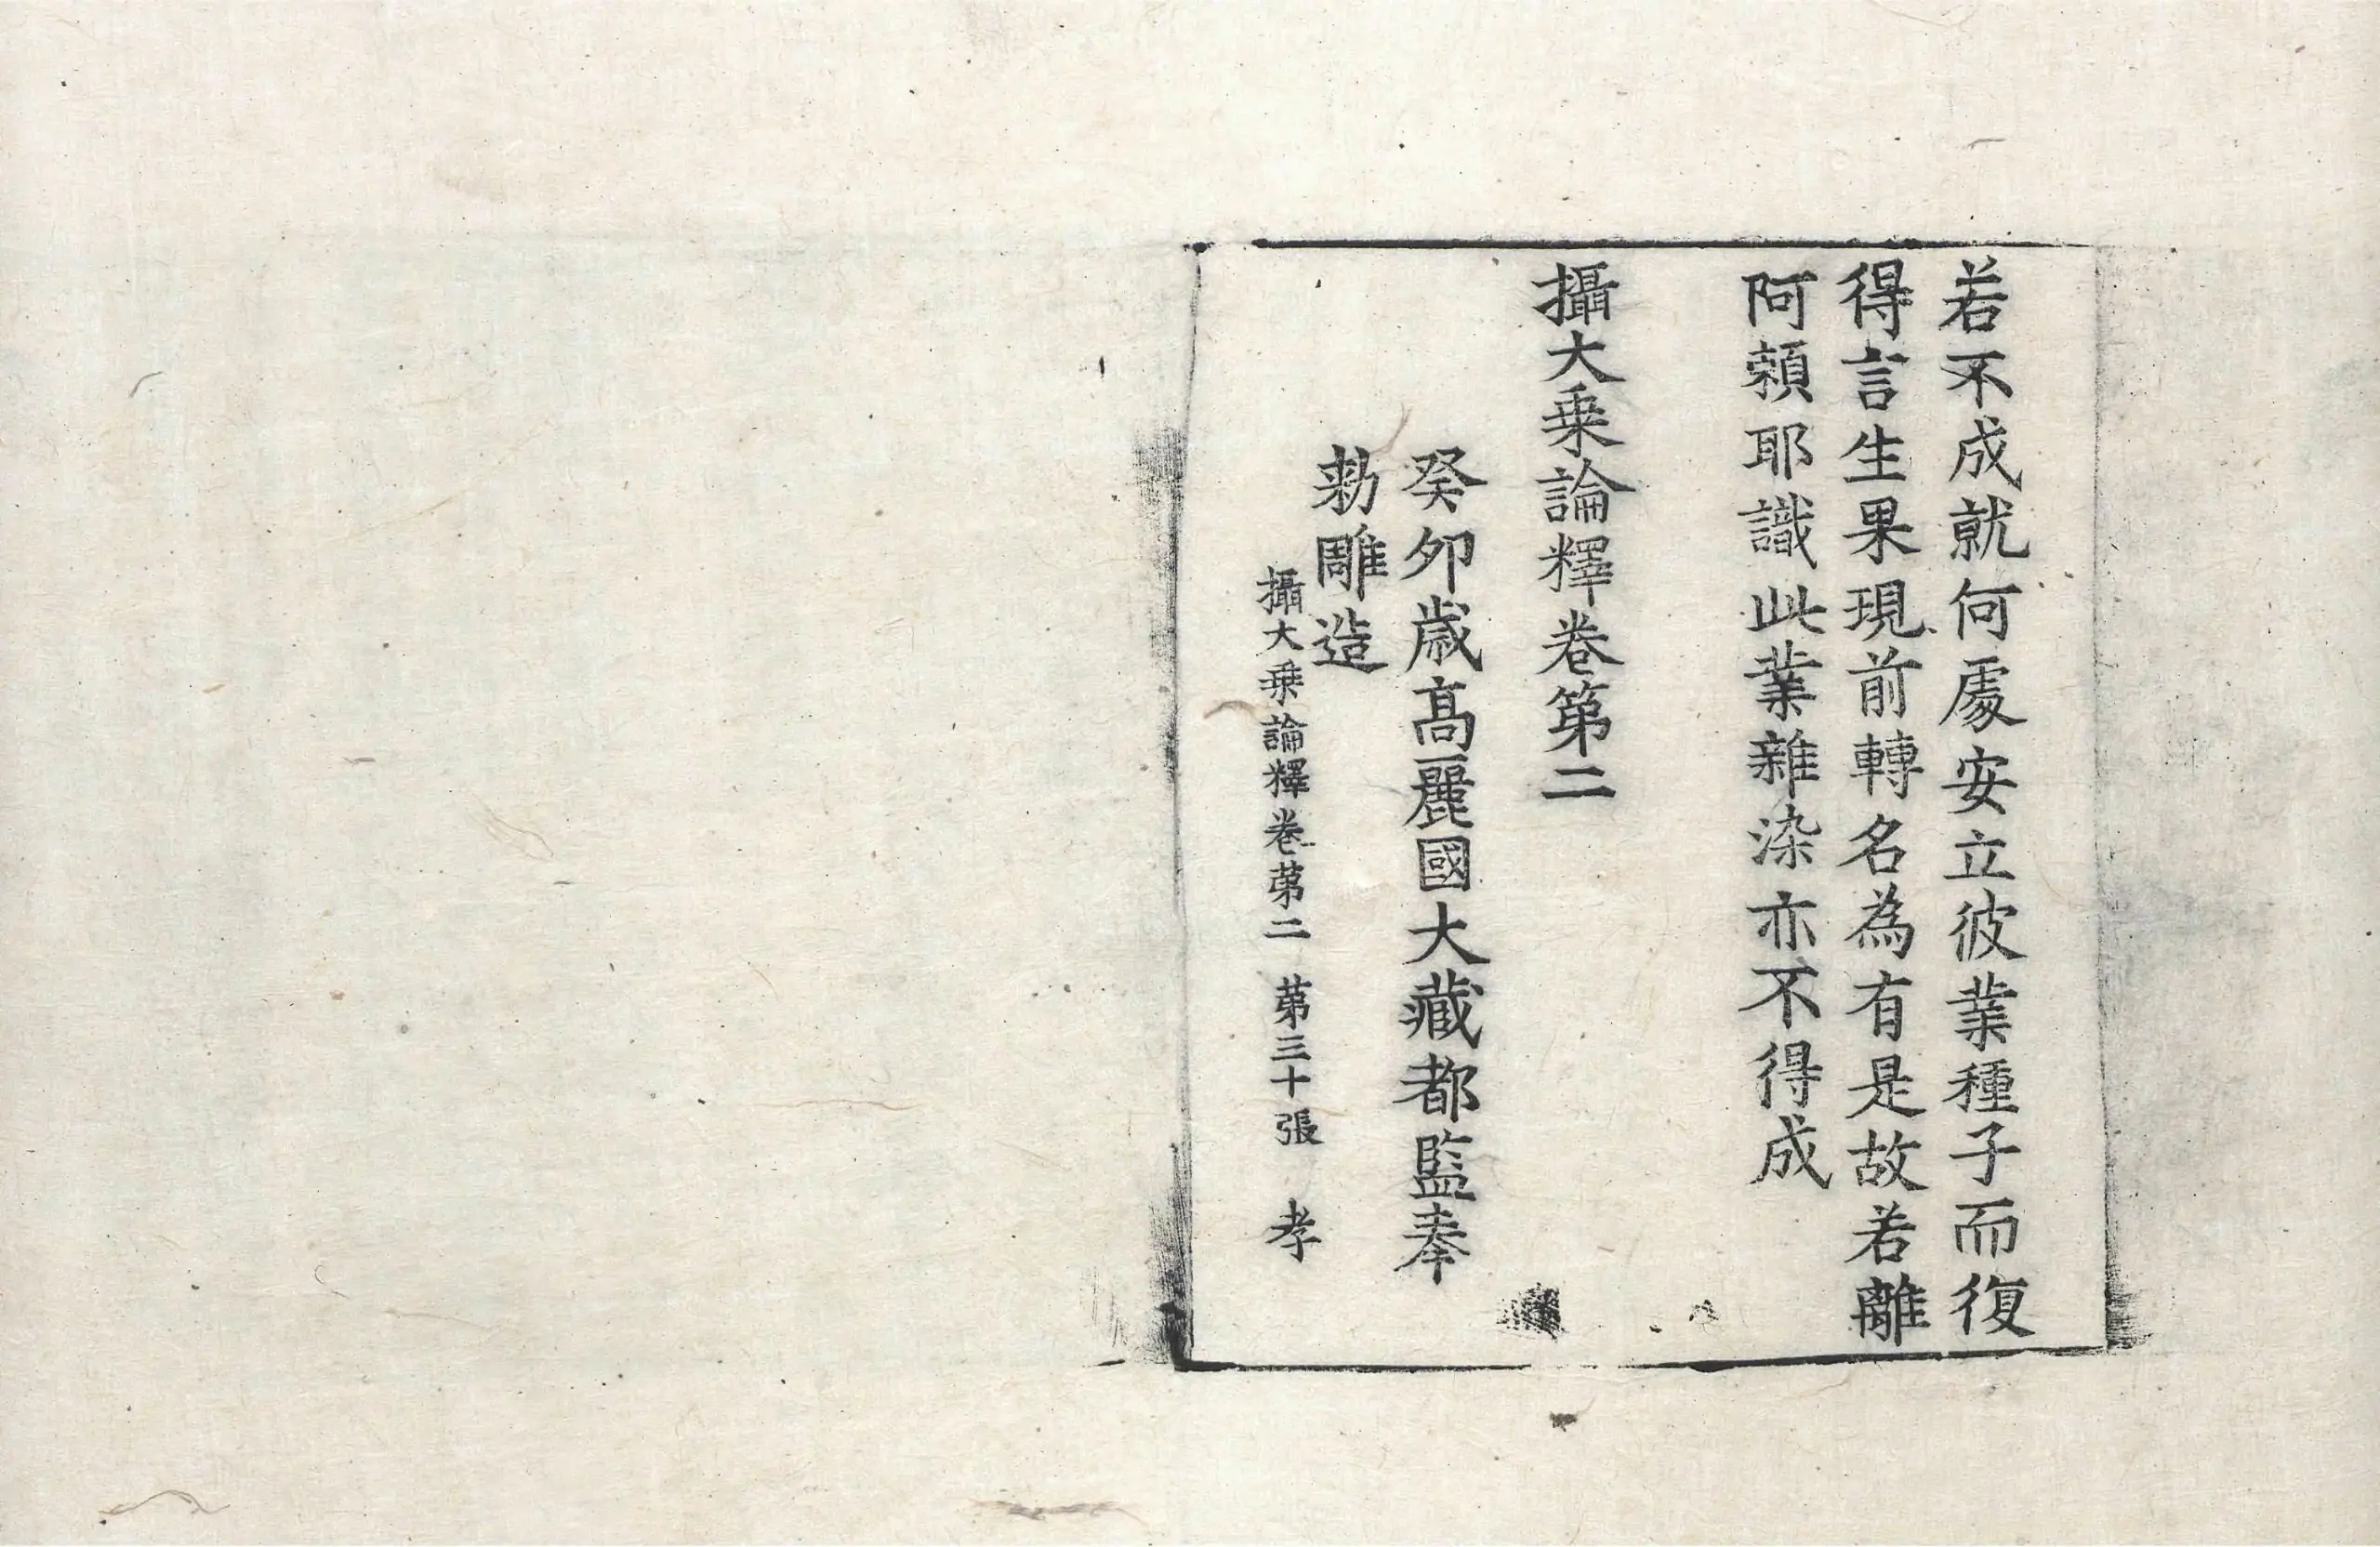 若不成就何處安立彼業種子而復
得言生果現前轉名為有是故若離
阿賴耶識此業雜染亦不得成
攝大乗論釋卷第二
癸夘歳髙麗國大藏都監奉
勑雕造
攝大乗論釋卷苐二　苐三十張　孝